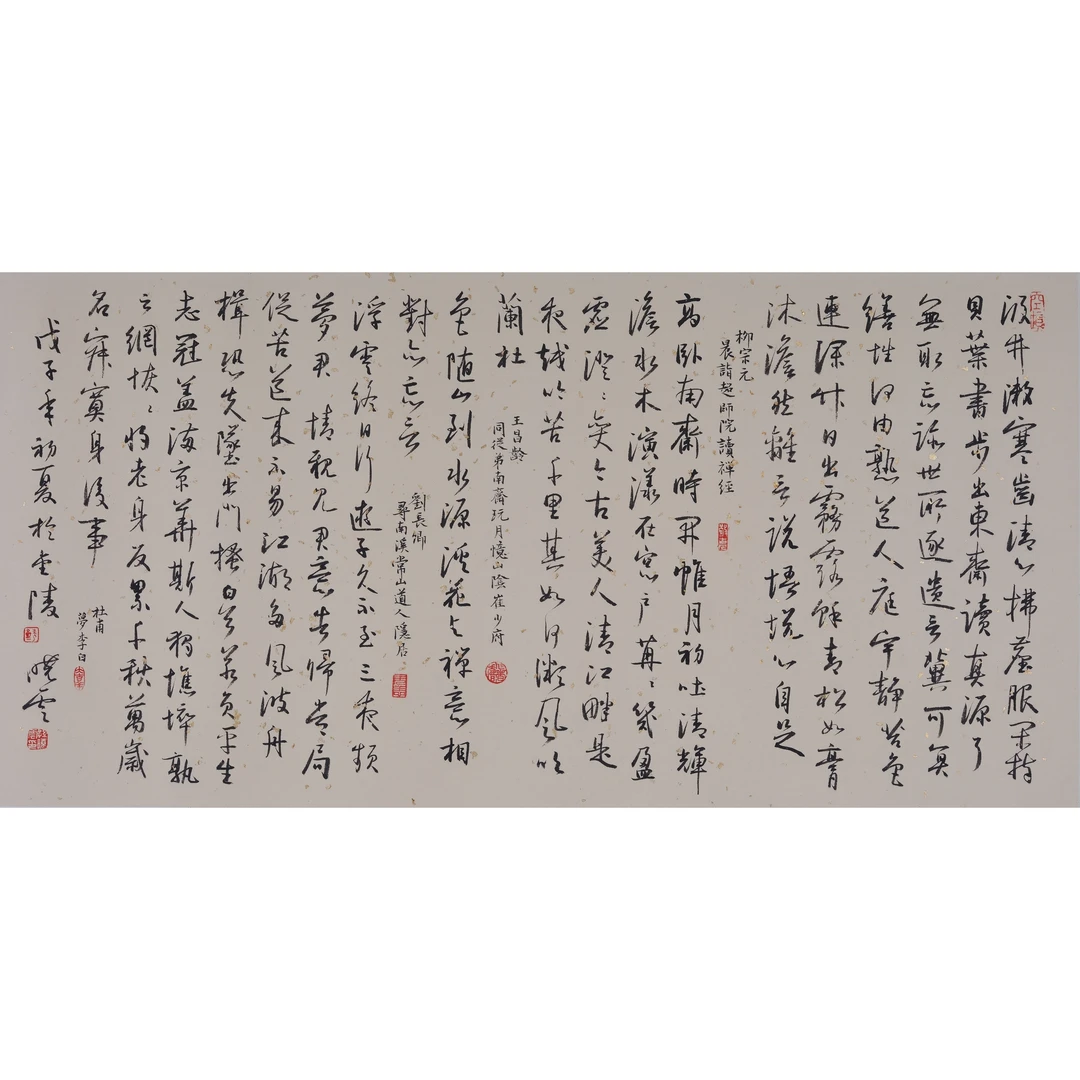 汲井漱寒齒清心拂塵服閒持
貝葉書步出東齋讀真源了
無取忘跡世所逐遺言冀可冥
繕性何由熟道人庭宇靜苔色
連深竹日出霧露餘青松如膏
沐澹然離言說悟悅心自足
柳宗元
晨詣超師院讀禪經
高臥南齋時開帷月初吐清輝
澹水木演漾在窗戶苒〻幾盈
虛澄〻變今古美人清江畔是
夜越吟苦千里其如何微風吹
蘭杜
王昌齡
同從弟南齋玩月憶山陰崔少府
色隨山到水源溪花與禪意相
對亦忘言
劉長卿
尋南溪常山道人隱居
浮雲終日行遊子久不至三夜頻
夢君情親見君意告歸常局
促苦道來不易江湖多風波舟
楫恐失墜出門搔白首若負平生
志冠蓋滿京華斯人獨憔悴孰
云網恢〻將老身反累千秋萬歲
名寂寞身後事
杜甫
夢李白
戊子年初夏於金陵曉雲